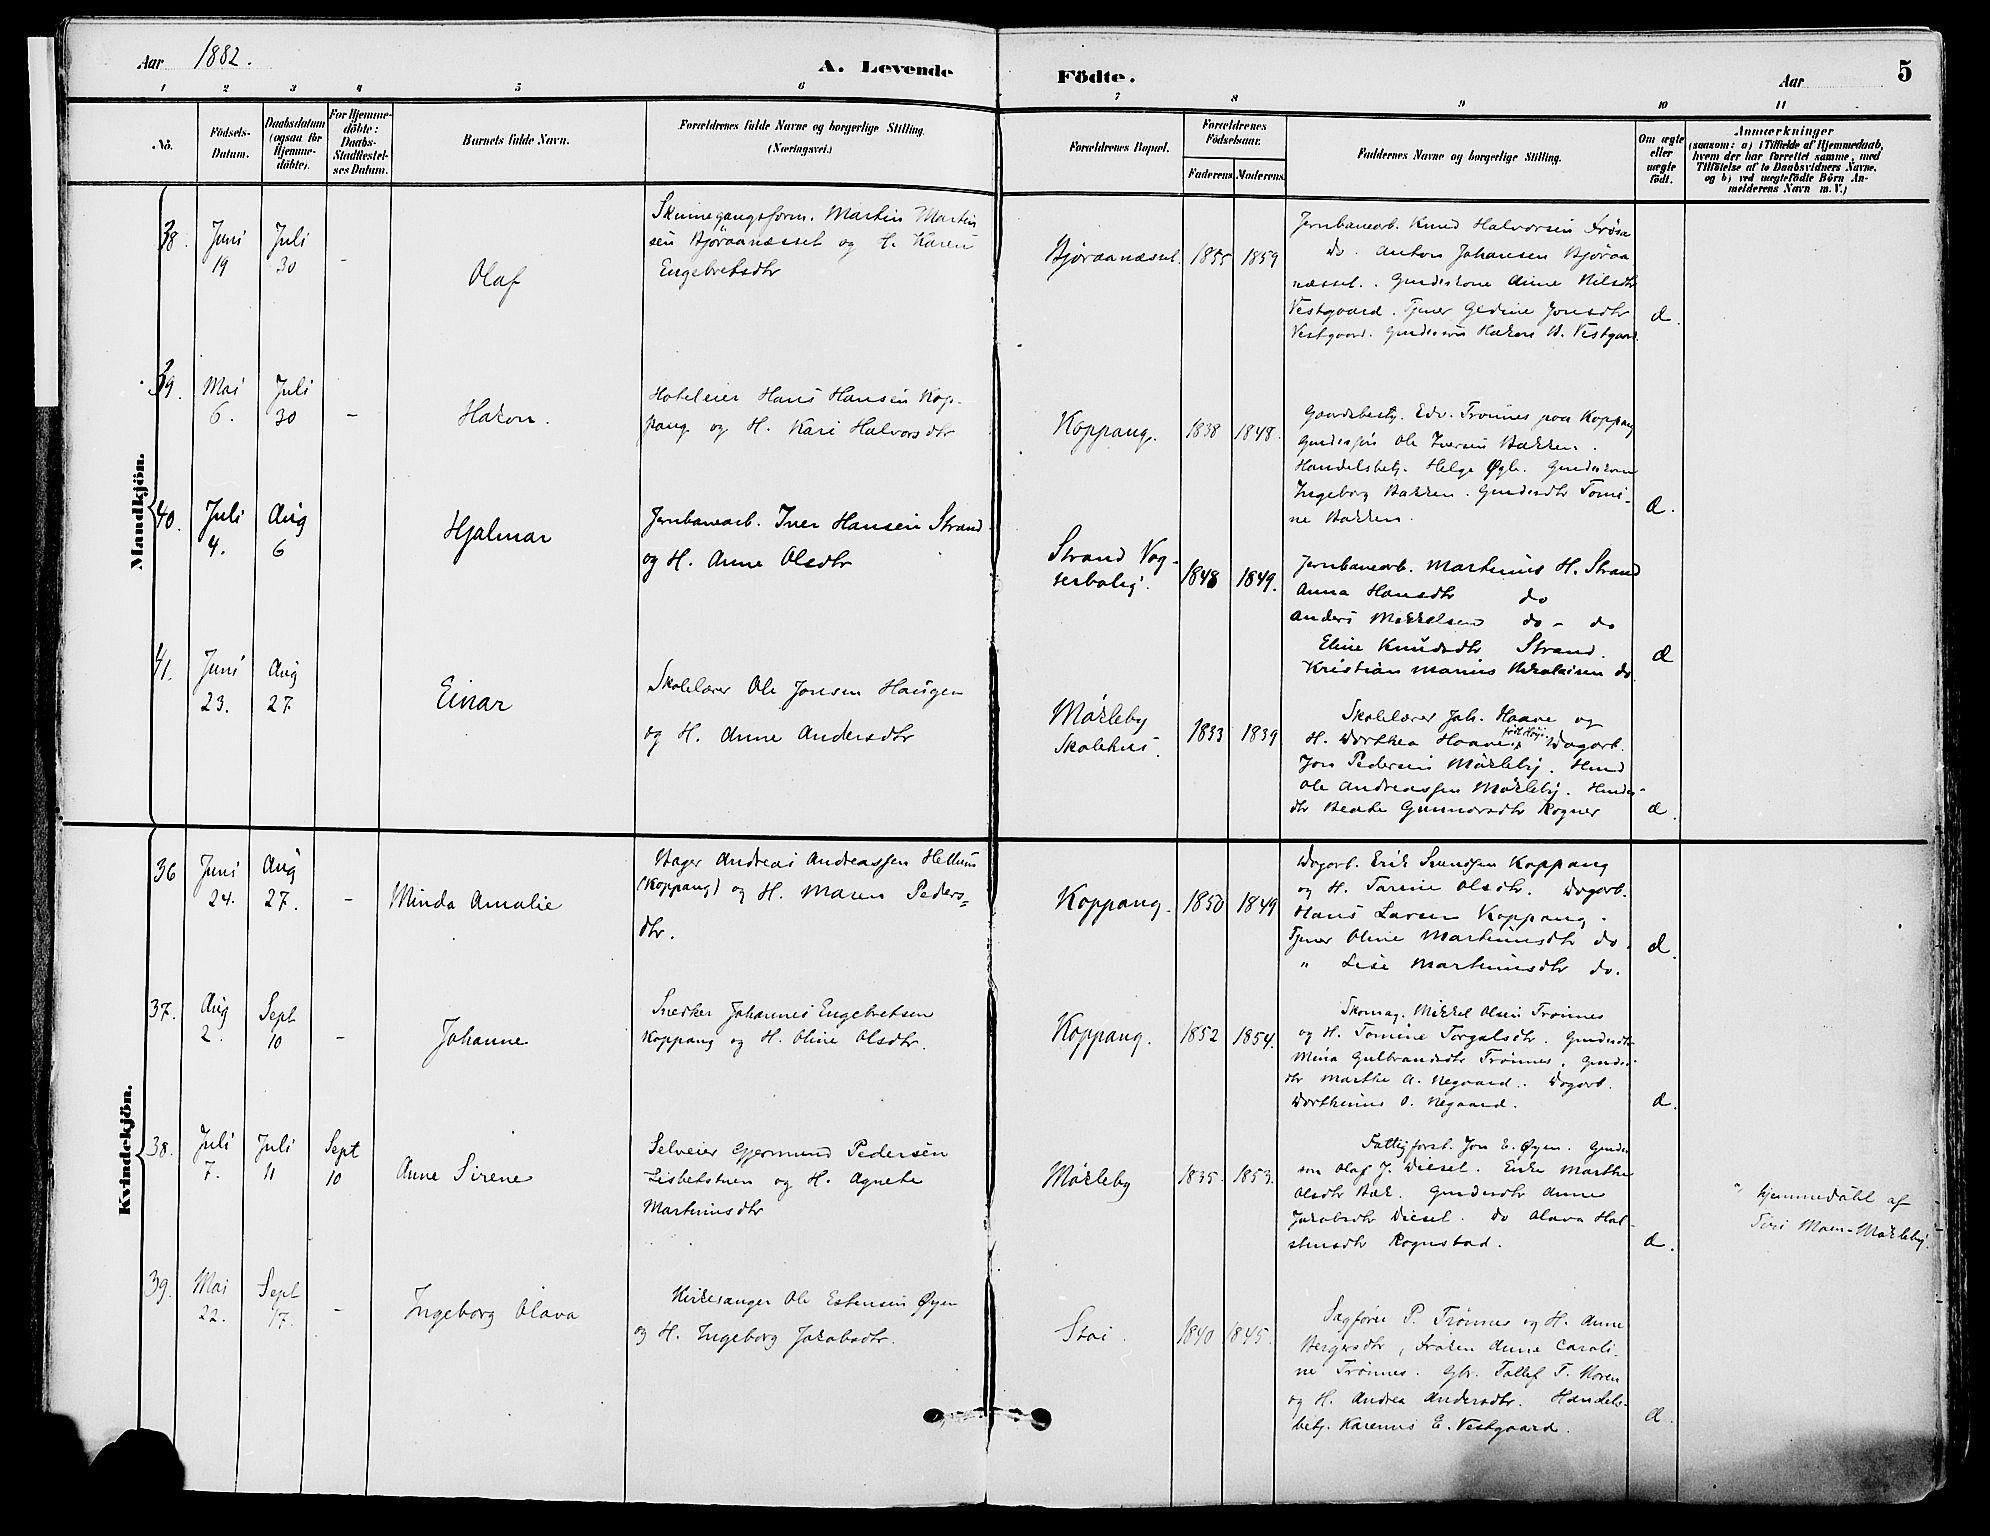 Aar 1882.
A. Levende Födte.
Aar
5
1 2 3 4 5 6 7 8 9 10 11
No.
Födsels-
Datum.
Daabsdatum
(ogsaa for
Hjemme-
döbte).
For Hjemme-
döbte:
Daabs-
Stadfæstel-
ses Datum.
Barnets fulde Navn.
Forældrenes fulde Navne og borgerlige Stilling.
(Næringsvei.)
Forældrenes Bopæl.
Forældrenes
Födselsaar.
Faderens Moderens
Faddernes Navne og borgerlige Stilling.
Om ægte
eller
uægte
födt.
Anmærkninger
(saasom: a) i Tilfælde af Hjemmedaab,
hvem der har forrettet samme, med
Tilföielse af to Daabsvidners Navne,
og b) ved uægtefödte Börn An-
melderens Navn m. V.)
Mandkjön.
38. Juni 19 Juli 30 - Olaf
Skinnegangsform. Martin Martin
sen Bjøraanæsset og H. Karen
Engebretsdtr
Bjøraanæsset. 1855 1859
Jernbanearb. Knud Halvorsen Frøsa
Do. Anton Johansen Bjøraa
næsset. Gmdeskone Anne Nilsdtr
Vestgaard. Tjner Gedine Jonsdtr
Vestgaard. Gmdesøn Hakon B. Vestgaard.
Æ.
39. Mai 6. Juli 30 - Hakon.
Hoteleier Hans Hansen Kop-
pang og H. Kari Halvorsdtr
Koppang. 1838 1848.
Gaardsbesty. Edv. Trønnes paa Koppang
Gmdessøn Ole Iversen Bakken.
Handelsbetj. Helge Øgle. Gmdeskone
Ingeborg Bakken. Gmdesdtr Tomi-
ne Bakken.
Æ.
40. Juli 4. Aug 6 Hjalmar
Jernbanearb. Iver Hansen Strand
og H. Anne Olsdtr
Strand Vog-
terbolig. 1848 1849.
Jernbanearb. Martinus H. Strand
Anna Hansdtr do
Anders Mikkelsen do - do
Eline Knudsdtr Strand.
Kristian Marius Nikolaisen do.
Æ
41. Juni 23. Aug 27. Einar
Skolelærer Ole Jonsen Haugen
og H. Anne Andersdtr
Mokleby
Skolehus. 1833 1839
Skolelærer Joh. Haave og
H. Dorthea Haave, Dagarb.
Jon Pedersen Mokleby. Hmd
Ole Andreassen Mokleby. Hmdes-
dtr Beate Gunnarsdtr Rogner
Æ.
Kvindekjön.
36 Juni 24. Aug 27. - Minda Amalie
Bager Andreas Andreassen Hellum
(Koppang) og H. Maren Peders-
dtr.
Koppang. 1850 1849
Dagarb. Erik Svendsen Koppang
og H. Tarine Olsdtr. Dagarb.
Hans Larsen Koppang.
Tjner Oline Martinusdtr do.
" Lise Martinusdtr do.
Æ.
37. Aug 2. Sept 10 - Johanne
Snedker Johannes Engebretsen
Koppang og H. Oline Olsdtr.
Koppang. 1852 1854.
Skomag. Mikkel Olsen Trønnes
og H. Tomine Torgalsdtr. Gmdesdtr
Mina Gulbrandsdtr Trønnes. Gmdes-
dtr Marthe A. Negaard. Dagarb.
Dorthinus O. Negaard.
Æ.
38. Juli 7. Juli 11 Sept 10 Anne Sirene
Selveier Gjermund Pedersen
Lisbetstuen og H. Agnete
Martinusdtr
Mokleby 1835. 1853.
Fattigforst. Jon E. Øyen. Gmdes
søn Olaf J. Diesel. Enke Marthe
Olsdtr Bæk. Gmdesdtr Anne
Jakobsdtr Diesel. do Olava Hal-
stensdtr Rognstad.
Æ.
" Hjemmedøbt af
Siri Moen-Mokleby.
39. Mai 22. Sept 17. - Ingeborg Olava
Kirkesanger Ole Estensen Øyen
og H. Ingeborg Jakobsdtr.
Stai. 1840 1845.
Sagfører P. Trønnes og H. Anne
Bergersdtr, Frøken Anne Caroli-
ne Trønnes. Gbr. Tollef T. Moren
og H. Andrea Andersdtr. Handels-
betj. Karenus E. Vestgaard.
Æ.